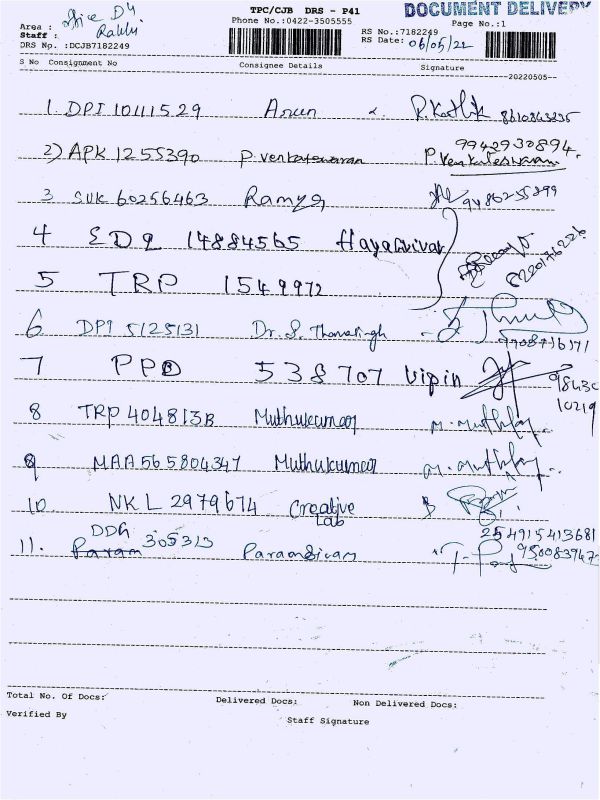 TPC/CJB DRS - P41
DOCUMENT DELIVERY
Phone No.:0422-3505555
Page No.:1
Area : office D4
Staff : Rakki
RS No.:7182249
DRS No. :DCJB7182249
RS Date: 06/05/22
S No Consignment No Consignee Details Signature
20220505
1. DPI 101111529 Arun R. Kathik 8610843235
2) APK 1255390 P. Venkateswaran 9942930894.
P. Venkateswaran
3 SUK 60256463 Ramya 9486255899
4 EDQ 14884565 Hayagrivar
8220176226
5 TRP 1549972
6 DPI 5125131 Dr. S. Thanasingh
9708736171
7 PPD 538707 Vipin 98430
10219
8 TRP 404813B Muthukumar M. Muthu
9 MAA 565804347 Muthukumar M. Muthu
10 NKL 2979674 Creative
Lab
254915413681
DDG
11. Param 305313 Paramasivam 9500839472
Total No. Of Docs: Delivered Docs: Non Delivered Docs:
Verified By
Staff Signature